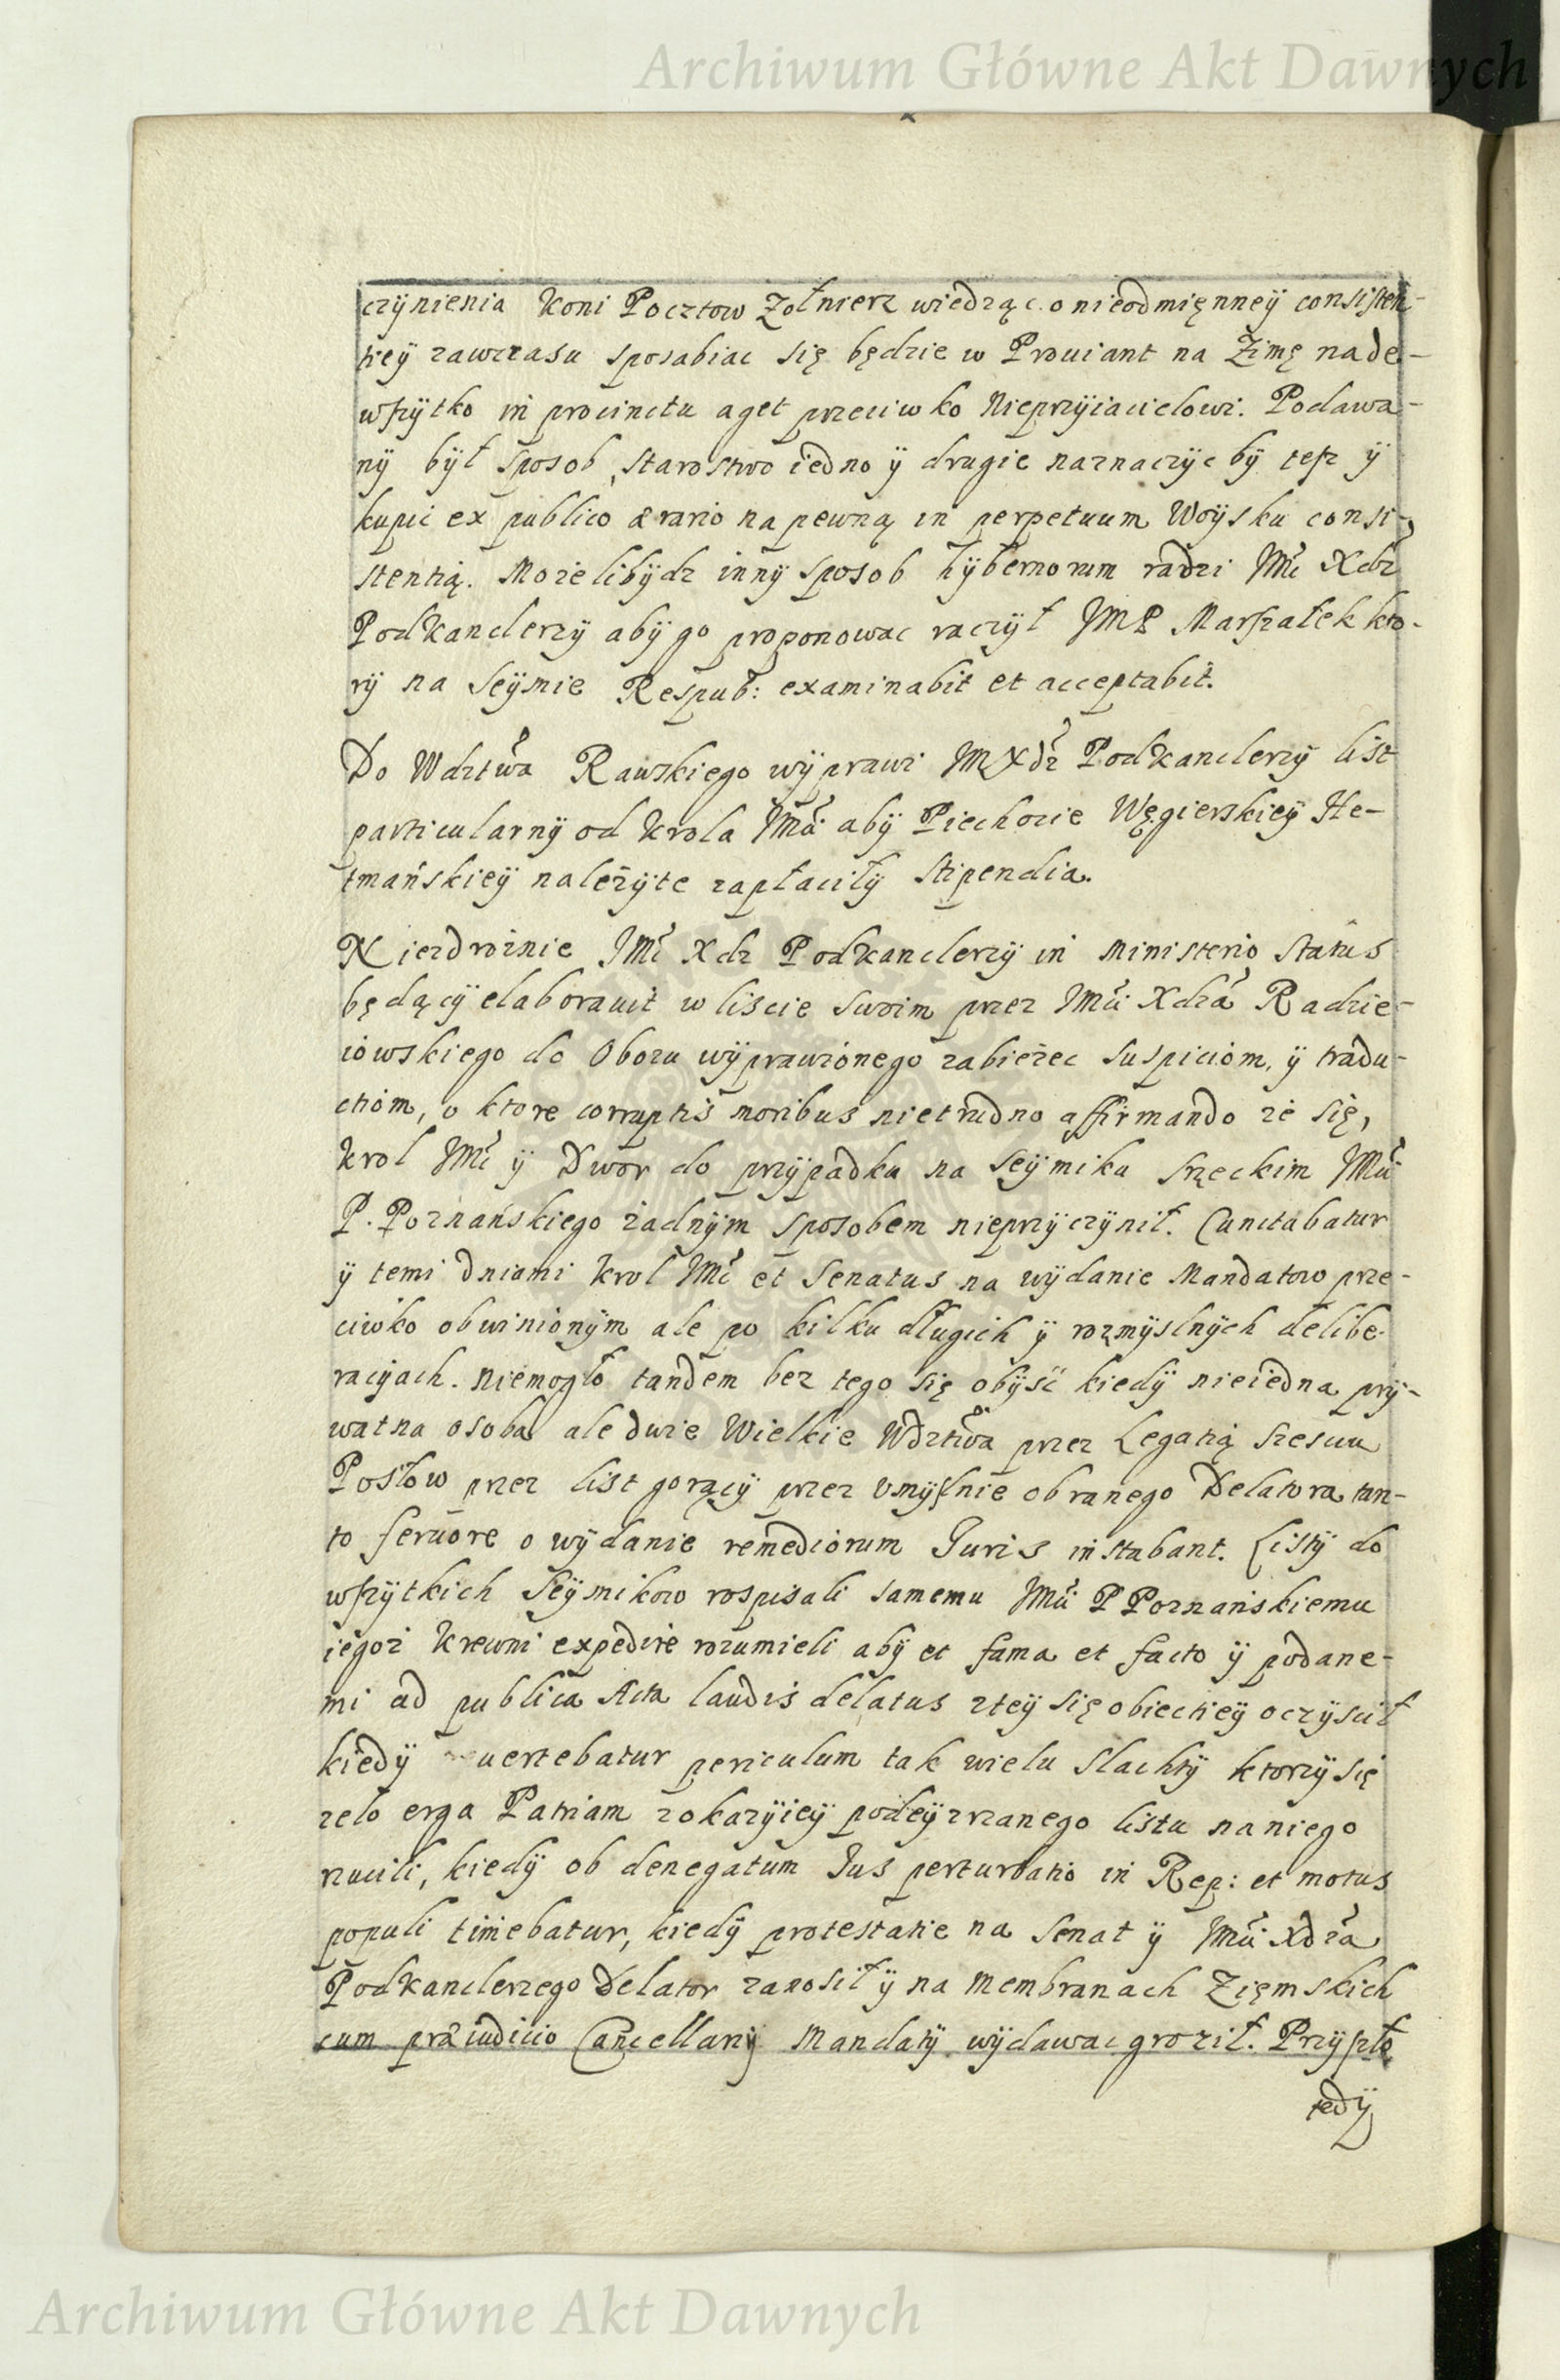 Archiwum Główne Akt Dawnych
czÿnienia Koni Pocztow Zołnierz wiedząc o nieodmięnneÿ consisten-
tieÿ zawczasu sposabiac się będzie w Prouiant na Zimę nade-
wszÿtko in procinctu aget przeciwko Nieprzÿiacielowi. Podawa-
nÿ bÿł sposob, Starostwo iedno ÿ drugie naznaczÿc bÿ tesz ÿ
kupic ex publico ærario na pewną in perpetuum Woÿsku consi-
stentią. Możelibÿdz innÿ sposob hÿbernorum radzi JMć Xdz
Podkanclerzÿ abÿ go proponowac raczÿł JMP Marszałek kto-
rÿ na Seÿmie Respub: examinabit et acceptabit.
Do Wdztwa Rawskiego wÿprawi JM Xdz Podkanclerzÿ list
particularnÿ od Krola JMci abÿ Piechocie Węgierskieÿ He-
tmańskieÿ należÿte zapłaciłÿ stipendia.
Niezdrożnie JMć Xdz Podkanclerzÿ in Ministerio Status
będącÿ elaborauit w liscie swoim przez JMci Xdza Radzie-
iowskiego do Obozu wÿprawionego zabieżec suspiciom, ÿ tradu-
ctiom, o ktore corruptis moribus nietrudno affirmando że się,
Krol JMć ÿ Dwor do przÿpadku na Seÿmiku Srzeckim JMci
P. Poznańskiego żadnÿm sposobem nieprzÿczÿnił. Cunctabatur
ÿ temi dniami Krol JMć et Senatus na wÿdanie Mandatow prze-
ciwko obwinionÿm ale po kilku długich ÿ rozmÿslnÿch delibe-
racÿach. Niemogło tandem bez tego się obÿść kiedÿ nieiedna prÿ-
watna osoba ale dwie Wielkie Wdztwa przez Legatią szesciu
Posłow przez list gorącÿ przez vmÿslnie obranego Delatora tan-
to feruore o wÿdanie remediorum Juris instabant. Listÿ do
wszÿtkich Seÿmikow rospisali samemu JMci P Poznanskiemu
iegoż Krewni expedire rozumieli abÿ et fama et facto ÿ podane-
mi ad publica Acta laudis delatus zteÿ się obiectieÿ oczÿscił
kiedÿ uertebatur periculum tak wielu Slachtÿ ktorzÿ się
zelo erga Patriam zokazÿieÿ podeÿzrzanego listu naniego
rzucili, kiedÿ ob denegatum Jus perturbatio in Rep: et motus
populi timebatur, kiedÿ protestatie na Senat ÿ JMci Xdza
Podkanclerzego Delator zanosił ÿ na Membranach Zięmskich
cum præiudicio Cancellarÿ Mandatÿ wÿdawac groził. Przÿszło
tedÿ
Archiwum Główne Akt Dawnych